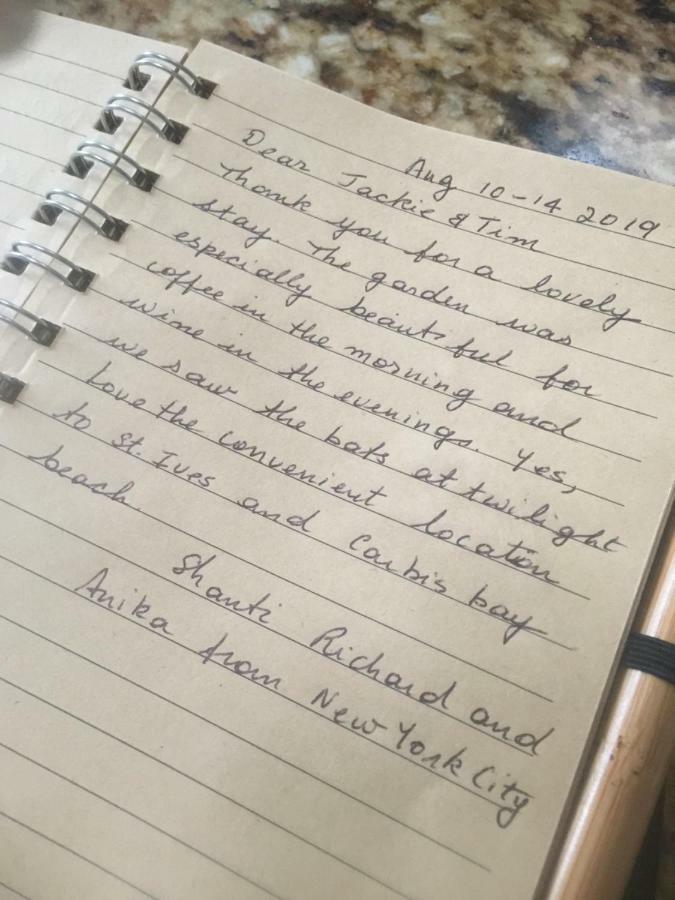 Aug 10-14 2019
Dear Jackie & Tim
Thank you for a lovely
stay. The garden was
especially beautiful for
coffee in the morning and
wine in the evenings. Yes,
we saw the bats at twilight
Love the convenient location
to St. Ives and Carbis bay
beach.
Shanti Richard and
Anika from New York City